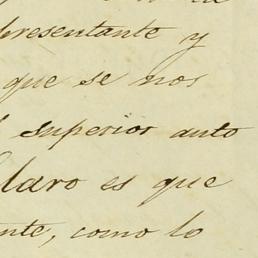 presentante y
que se nos
superior auto
claro es que
nte, como lo